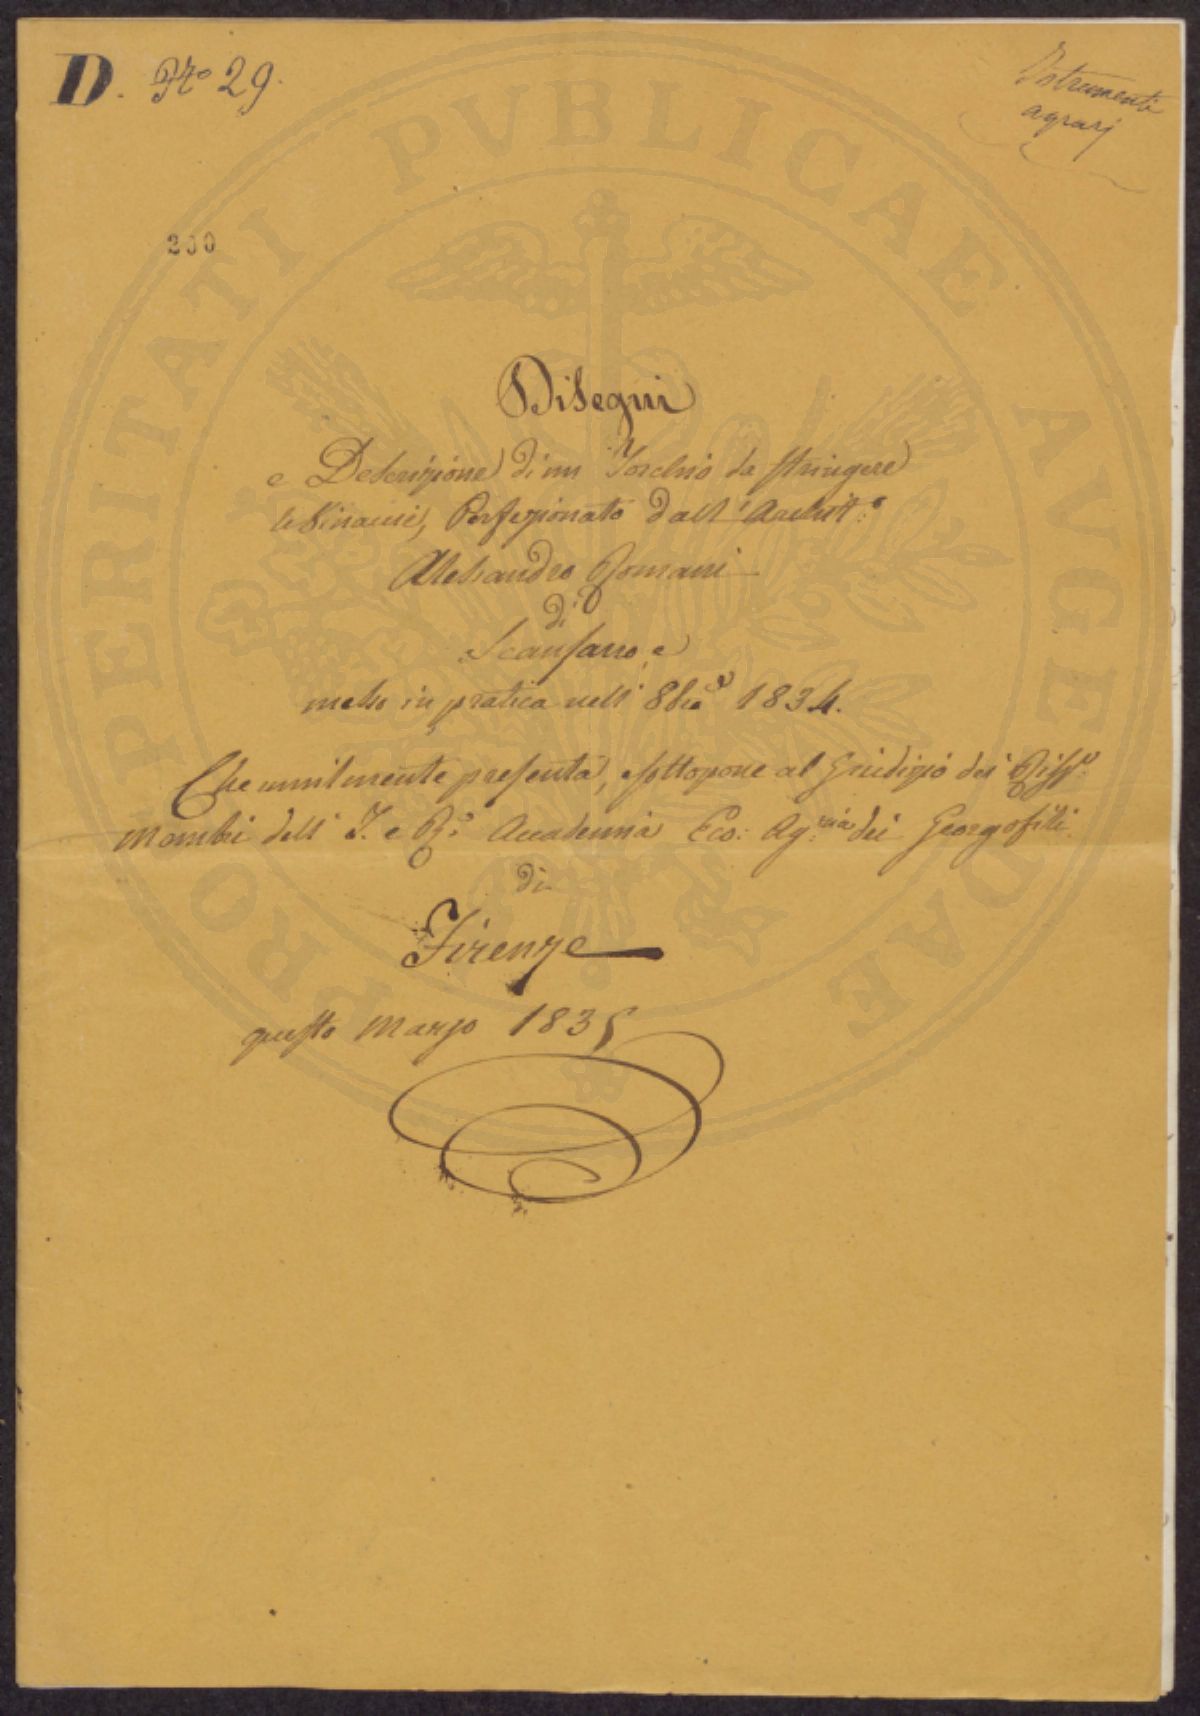 D. N.º 29.
Istrumenti
agrarj
200
PROSPERITATI PVBLICAE AVGENDAE
Disegni
e Descrizione di un Torchio da stringere
le Vinacce, Perfezionato dall' Archit.º
Alessandro Romani
di
Scansano, e
messo in pratica nell' 8bre 1834.
Che umilmente presenta, e sottopone al Giudizio dei
Membri dell' I. e R.e Accademia Eco: Ag.ria dei Georgofili
di
Firenze
questo Marzo 1835